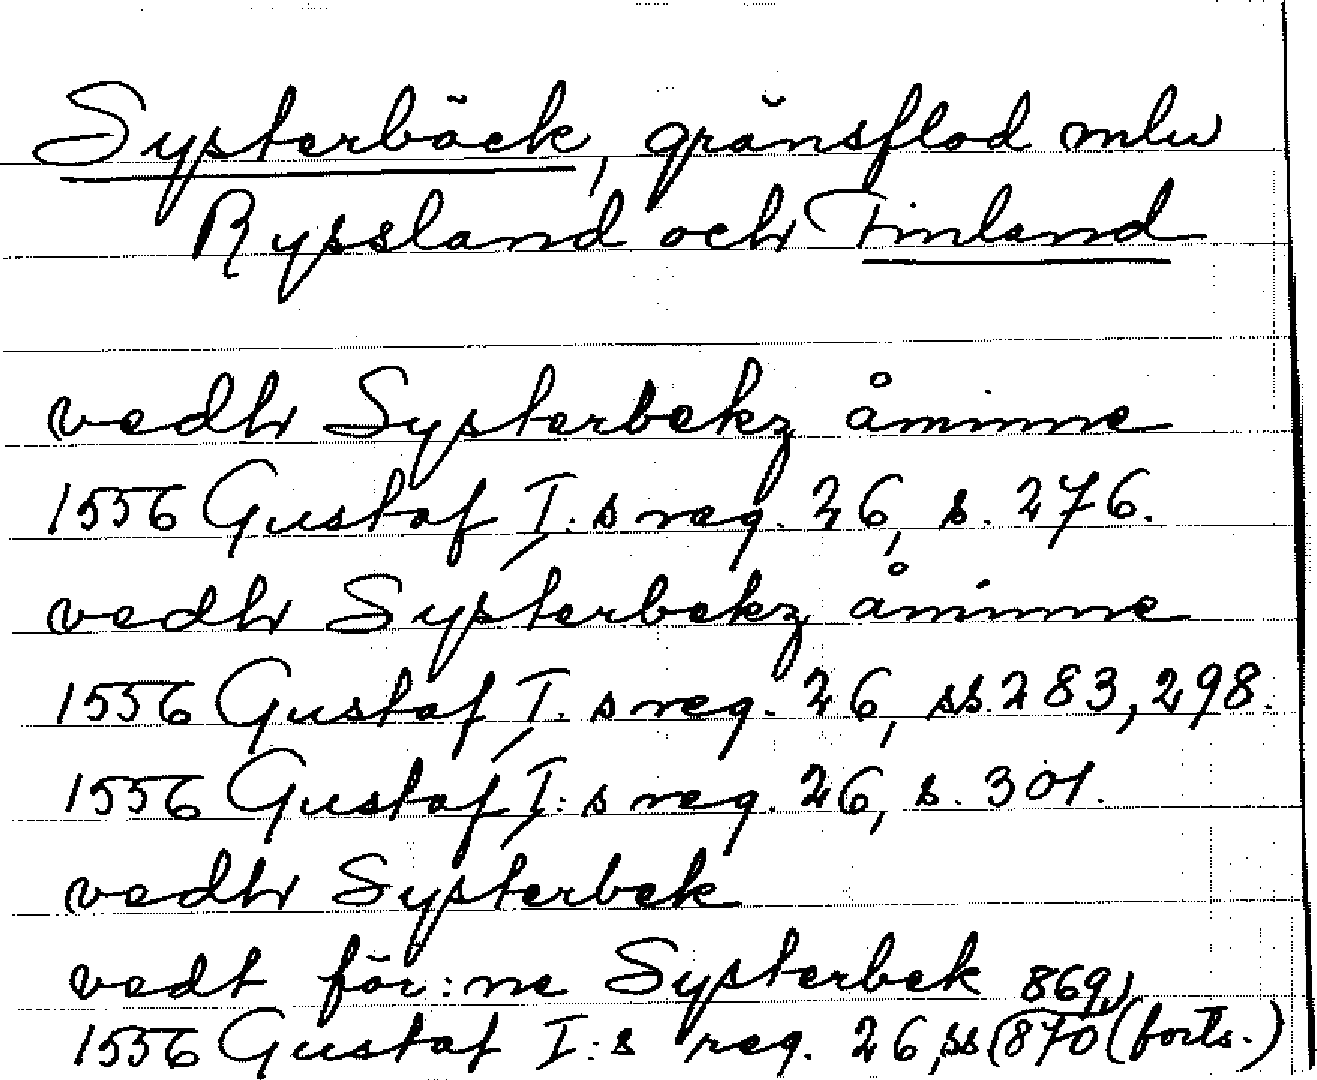 Systerbäck, gränsflod mlu
Ryssland och Finland
vedh Systerbekz åminne
1556 Gustaf I:s reg. 26, s. 276.
vedh Systerbekz åminne
1556 Gustaf I:s reg. 26, ss. 283, 298.
1556 Gustaf I:s reg. 26, s. 301.
vedh Systerbek
vedt för:ne Systerbek 869,
1556 Gustaf I:s reg. 26, ss (870 (forts.)